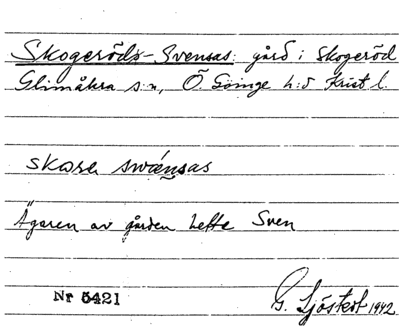 Skogeröds-Svensas: gård i Skogeröd
Glimåkra s:n, Ö. Göinge h:d Krist l.
skɷrɐ swǽnsas
Ägaren av gården hette Sven
Nr 5421
G. Sjöstedt 1942